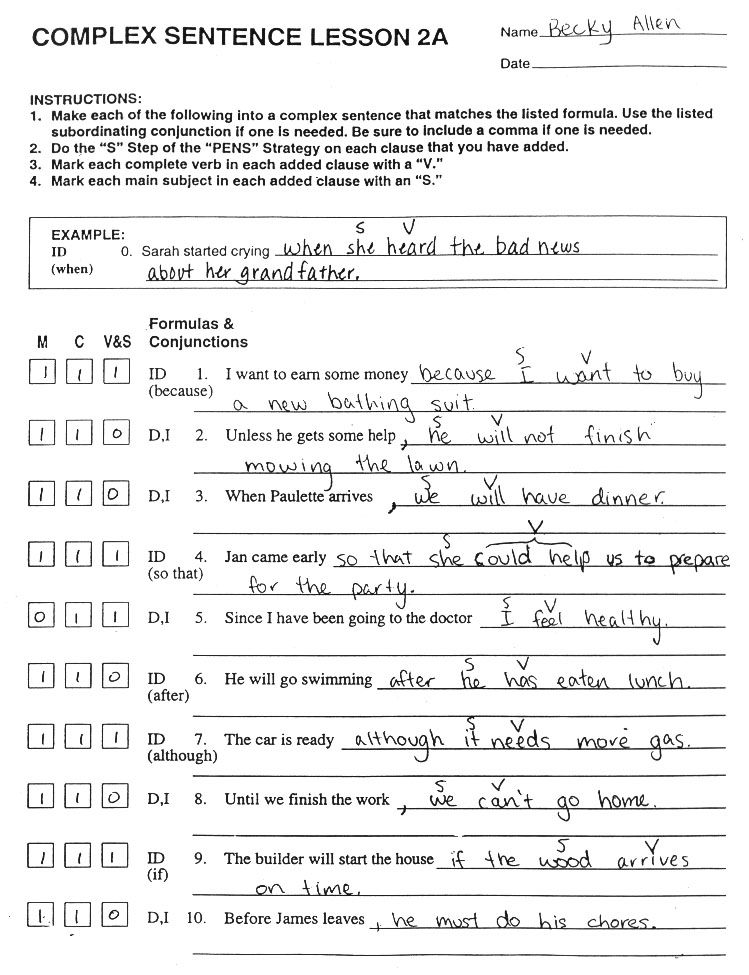 COMPLEX SENTENCE LESSON 2A
Name Becky Allen
Date
INSTRUCTIONS:
1. Make each of the following into a complex sentence that matches the listed formula. Use the listed
subordinating conjunction if one is needed. Be sure to include a comma if one is needed.
2. Do the "S" Step of the "PENS" Strategy on each clause that you have added.
3. Mark each complete verb in each added clause with a "V."
4. Mark each main subject in each added clause with an "S."
S V
EXAMPLE:
ID 0. Sarah started crying when she heard the bad news
(when) about her grandfather.
Formulas &
M C V&S Conjunctions
S V
1 1 1 ID 1. I want to earn some money because I want to buy
(because) a new bathing suit.
S V
1 1 0 D,I 2. Unless he gets some help, he will not finish
mowing the lawn.
S V
1 1 0 D,I 3. When Paulette arrives, we will have dinner.
S V
1 1 1 ID 4. Jan came early so that she could help us to prepare
(so that) for the party.
S V
0 1 1 D,I 5. Since I have been going to the doctor I feel healthy.
S V
1 1 0 ID 6. He will go swimming after he has eaten lunch.
(after)
S V
1 1 1 ID 7. The car is ready although it needs more gas.
(although)
S V
1 1 0 D,I 8. Until we finish the work, we can't go home.
S V
1 1 1 ID 9. The builder will start the house if the wood arrives
(if) on time.
1 1 0 D,I 10. Before James leaves, he must do his chores.